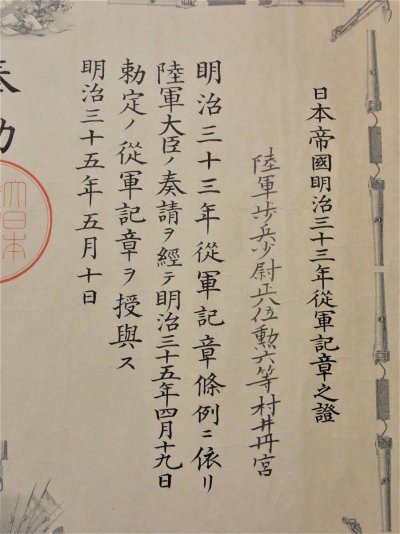 日本帝國明治三十三年從軍記章之證
陸軍歩兵少尉正八位勲六等村井丹宮
明治三十三年從軍記章條例ニ依リ
陸軍大臣ノ奏請ヲ經テ明治三十五年四月十九日
勅定ノ從軍記章ヲ授與ス
明治三十五年五月十日
大日本